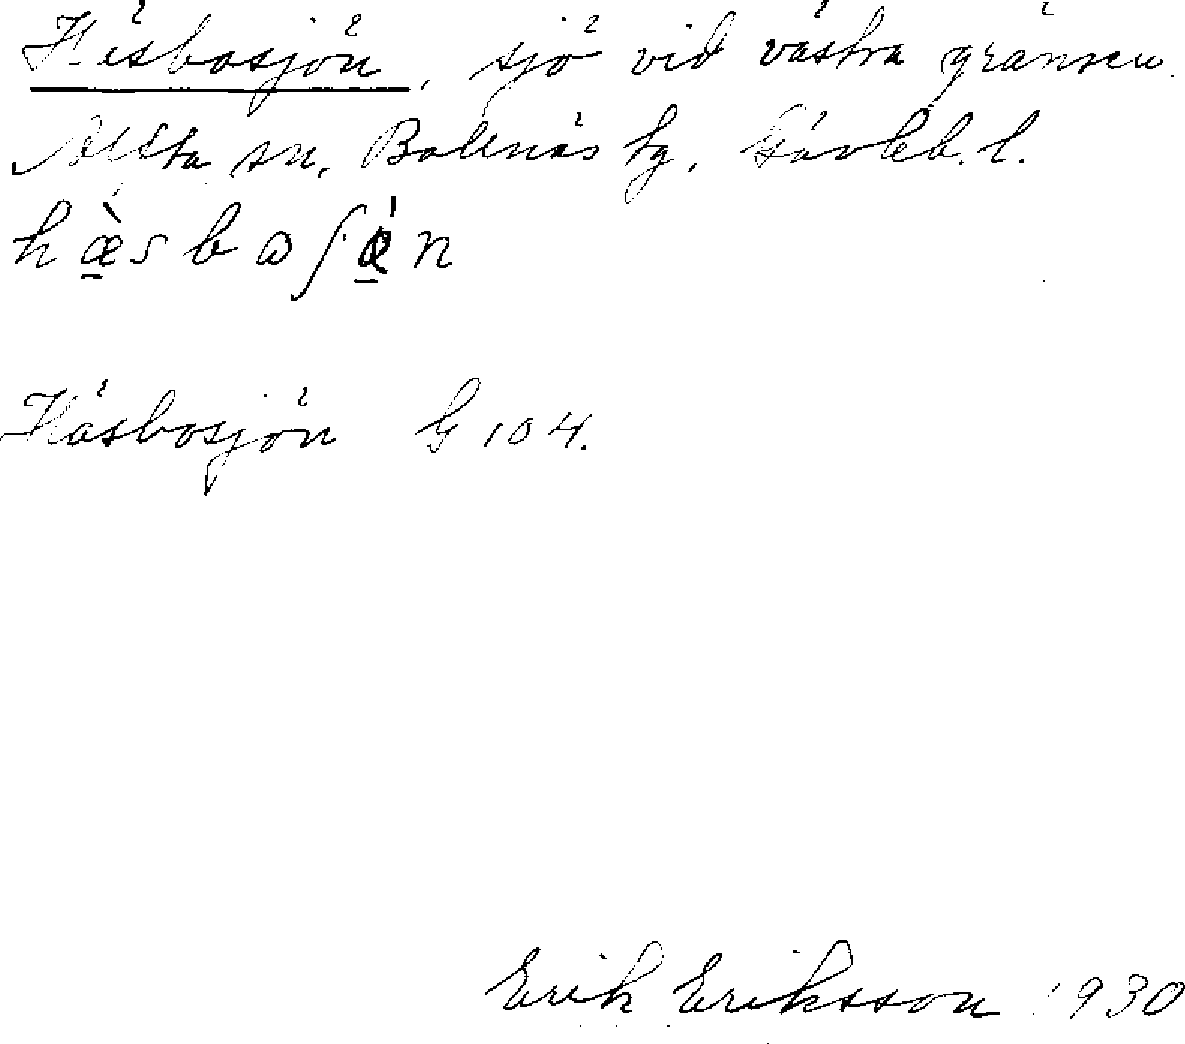 Häsbosjön, sjö vid västra gränsen.
Alfta sn. Bollnäs tg. Gävleb. l.
hæ̱̀sbaʃæ̱̍n
Häsbosjön G 104.
Erik Eriksson 1930